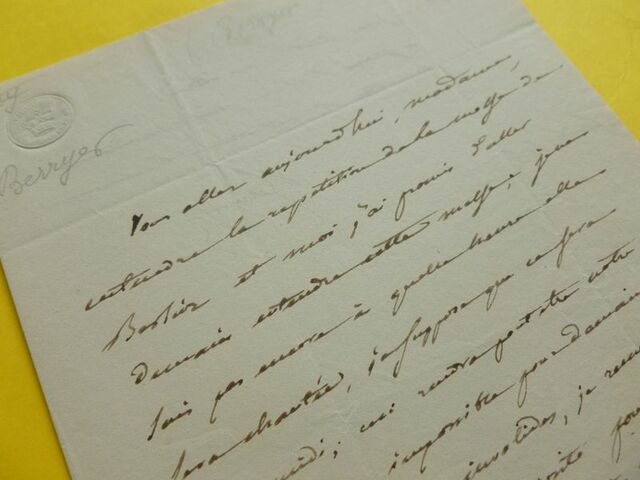 Berryer
Berryer
Vous allez aujourd'hui, madame,
entendre la repetition de la messe de
et moi j'ai promis d'aller
demain entendre cette messe, je ne
sais pas encore à quelle heure elle
sera chantée, je suppose que ce sera
midi; ceci rendra peut être notre
impossible pour demain
invalides, je